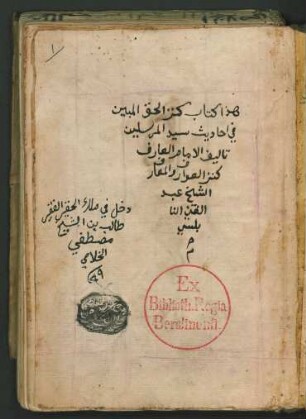 ١
هذا كتاب كنز الحق المبين
في احاديث سيد المرسلين
تاليف الامام العارف
كنز العوارف والمعارف
الشيخ عبد
الغني النا
بلسي
م
دخل في ملك الحقير الفقير
طالب بن الشيخ
مصطفي
Ex
Biblioth. Regia
Berolinensi.